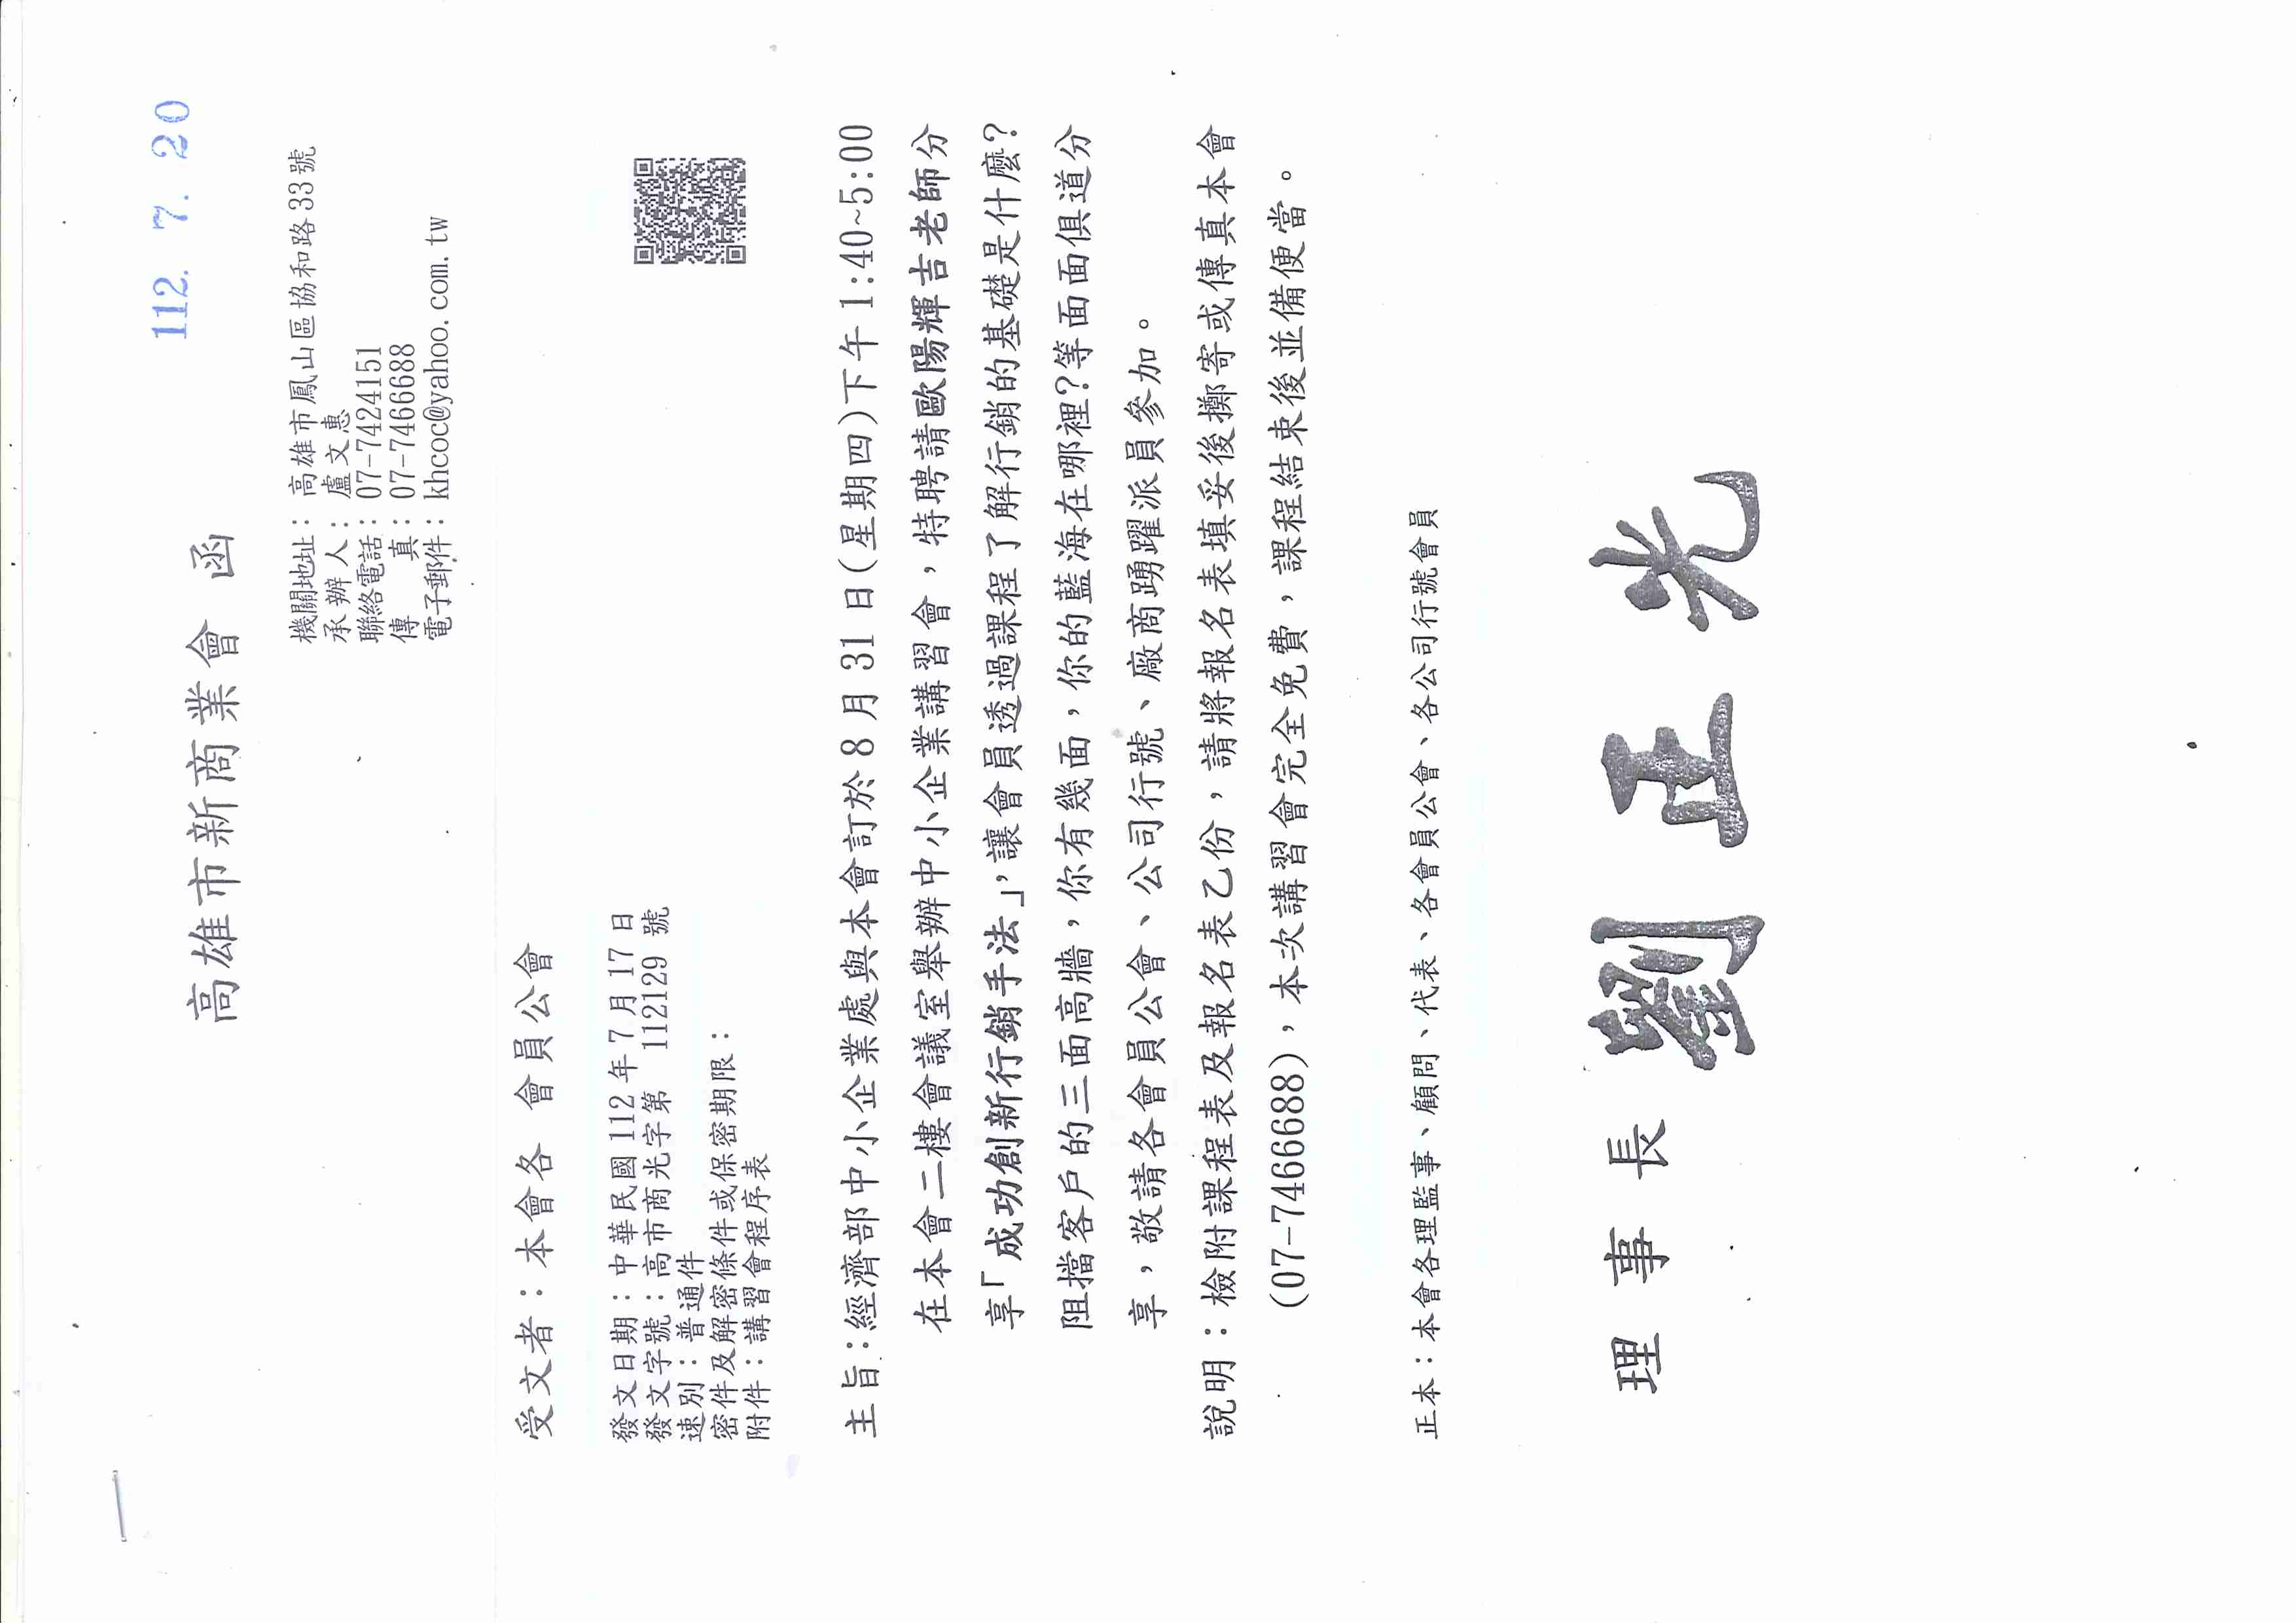 112. 7. 20
高雄市新商業會 函
機關地址：高雄市鳳山區協和路33號
承 辦 人：盧文惠
聯絡電話：07-7424151
傳　　真：07-7466688
電子郵件：khcoc@yahoo.com.tw
受文者：本會各 會員公會
發文日期：中華民國112年7月17日
發文字號：高市商光字第 112129 號
速別：普通件
密件及解密條件或保密期限：
附件：講習會程序表
主 旨：經濟部中小企業處與本會訂於8月31日(星期四)下午1:40~5:00
在本會二樓會議室舉辦中小企業講習會，特聘請歐陽輝吉老師分
享「成功創新行銷手法」，讓會員透過課程了解行銷的基礎是什麼?
阻擋客戶的三面高牆，你有幾面，你的藍海在哪裡?等面面俱道分
享，敬請各會員公會、公司行號、廠商踴躍派員參加。
說明：檢附課程表及報名表乙份，請將報名表填妥後擲寄或傳真本會
(07-7466688)，本次講習會完全免費，課程結束後並備便當。
正本：本會各理監事、顧問、代表、各會員公會、各公司行號會員
理 事 長 劉正光